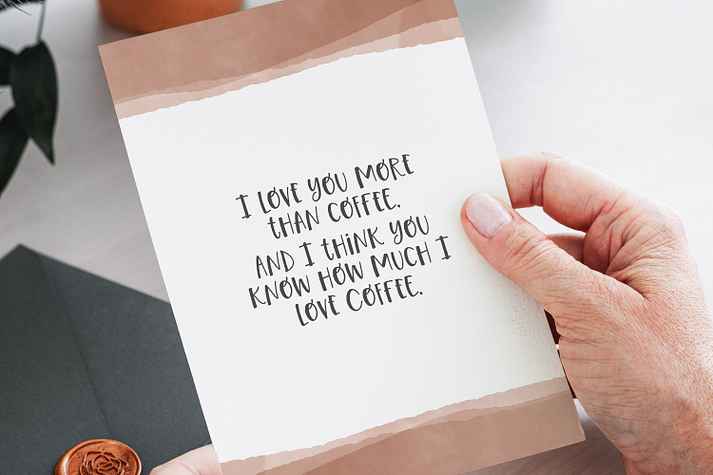 I LOVE YOU MORE
THAN COFFEE.
AND I THINK YOU
KNOW HOW MUCH I
LOVE COFFEE.